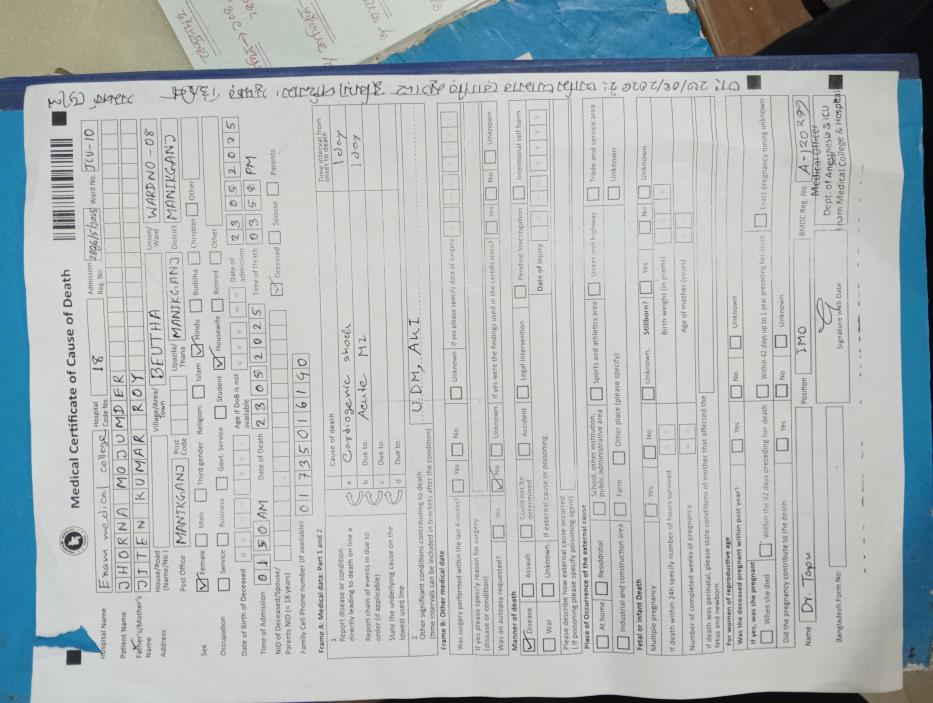 Medical Certificate of Cause of Death
Hospital Name Enam medical college Hospital Code No. 18 Admission Reg. No. Ward No. ICU-10
Patient Name JHORNA MOJUMDER
Father's/Mother's Name JITEN KUMAR ROY
Address House/Road (Name/No.) Village/Area/Town BEUTHA Union/Ward WARD NO-08
Post Office MANIKGANJ Post Code Upazila/Thana MANIKGANJ District MANIKGANJ
Sex Female Male Third gender Religion: Islam Hindu Buddha Christian Other
Occupation Service Business Govt. Service Student Housewife Retired Other
Date of Birth of Deceased Age if DoB is not available Date of admission 23052025
Time of Admission 0150AM Date of Death 23052025 Time of Death 0358PM
NID of Deceased/Spouse/Parents NID (< 18 years) Deceased Spouse Parents
Family Cell Phone number (if available) 01735016190
Frame A: Medical data: Part 1 and 2
1 Cause of death Time interval from onset to death
Report disease or condition directly leading to death on line a a Cardiogenic shock 1day
Report chain of events in due to order (if applicable) b Due to: Acute MI 1day
c Due to:
State the underlying cause on the lowest used line d Due to:
2 Other significant conditions contributing to death (time intervals can be included in brackets after the condition) UDM, AKI
Frame B: Other medical data
Was surgery performed within the last 4 weeks? Yes No Unknown If yes please specify date of surgery
If yes please specify reason for surgery (disease or condition)
Was an autopsy requested? Yes No Unknown If yes were the findings used in the certification? Yes No Unknown
Manner of death
Disease Assault Could not be determined Accident Legal Intervention Pending Investigation Intentional self harm
War Unknown If external cause or poisoning Date of injury
Please describe how external cause occurred (If poisoning please specify poisoning agent)
Place of Occurrence of the external cause
At home Residential School, other institution, public administrative area Sports and athletics area Street and highway Trade and service area
Industrial and construction area Farm Other place (please specify): Unknown
Fetal or infant Death
Multiple pregnancy Yes No Unknown Stillborn? Yes No Unknown
If death within 24h specify number of hours survived Birth weight (in grams)
Number of completed weeks of pregnancy Age of mother (years)
If death was perinatal, please state conditions of mother that affected the fetus and newborn
For women of reproductive age
Was the deceased pregnant within past year? Yes No Unknown
If yes, was she pregnant
When she died Within the 42 days preceding her death Within 42 days up to 1 year preceding her death Exact pregnancy timing unknown
Did the pregnancy contribute to the death Yes No Unknown
Name Dr. Tapu Position IMO BMDC Reg. No. A-120297
Medical Officer
Dept. of Anesthesia & ICU
Enam Medical College & Hospital
Bangladesh Form No: Signature with Date